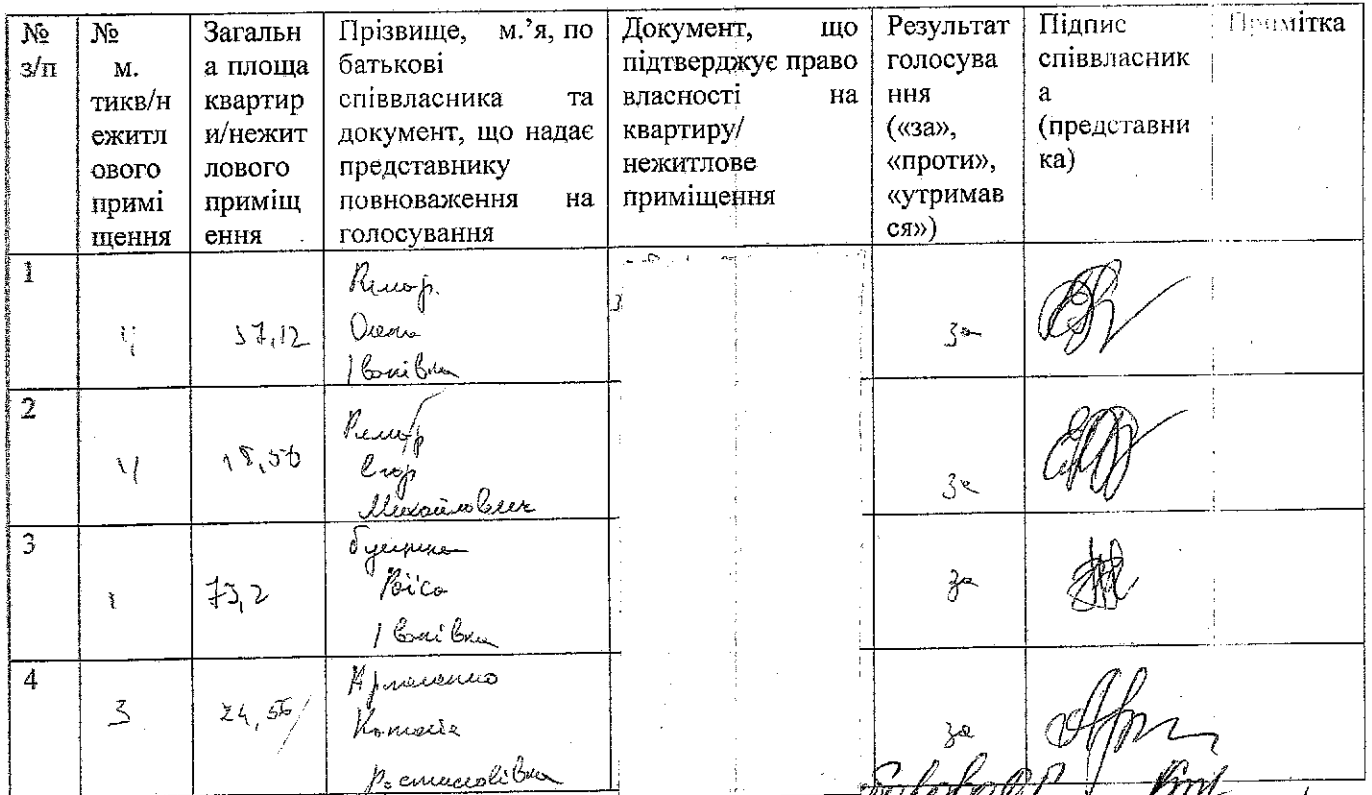 № з/п
№ м. тикв/н ежитл ового примі щення
Загальн а площа квартир и/нежит лового приміщ ення
Прізвище, м.’я, по батькові співвласника та документ, що надає представнику повноваження на голосування
Документ, що підтверджує право власності на квартиру/ нежитлове приміщення
Результат голосува ння («за», «проти», «утримав ся»)
Підпис співвласник а (представни ка)
Примітка
1
4
37,12
Олена
Іванівна
за
2
4
18,56
Єгор
Михайлович
за
3
1
73,2
Раїса
Іванівна
за
4
3
24,
Наталія
Ростиславівна
за